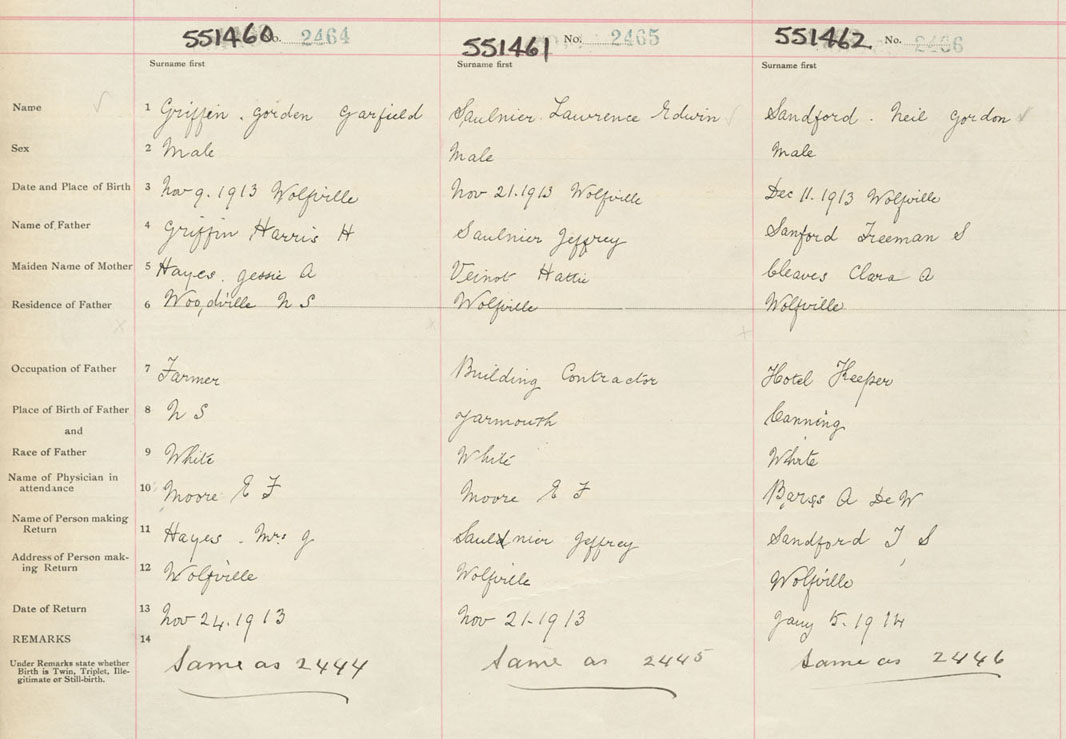 551460 No. 2464 551461 No. 2465 551462 No. 2466
Surname first Surname first Surname first
Name 1 Griffin . Gorden Garfield Saulnier Lawrence Edwin Sandford . Neil Gordon
Sex 2 Male Male Male
Date and Place of Birth 3 Nov 9. 1913 Wolfville Nov 21. 1913 Wolfville Dec 11. 1913 Wolfville
Name of Father 4 Griffin Harris H Saulnier Jeffrey Sanford Freeman S
Maiden Name of Mother 5 Hayes. Jessie A Veinot Hattie Cleaves Clara A
Residence of Father 6 Woodville N S Wolfville Wolfville
Occupation of Father 7 Farmer Building Contractor Hotel Keeper
Place of Birth of Father 8 N S Yarmouth Canning
and
Race of Father 9 White White White
Name of Physician in
attendance 10 Moore E F Moore E F Barss A DeW
Name of Person making
Return 11 Hayes . Mrs J Saulnier Jeffrey Sandford F S
Address of Person mak-
ing Return 12 Wolfville Wolfville Wolfville
Date of Return 13 Nov 24. 1913 Nov 21-1913 Jany 5. 1914
REMARKS 14
Under Remarks state whether
Birth is Twin, Triplet, Ille-
gitimate or Still-birth.
Same as 2444 Same as 2445 Same as 2446